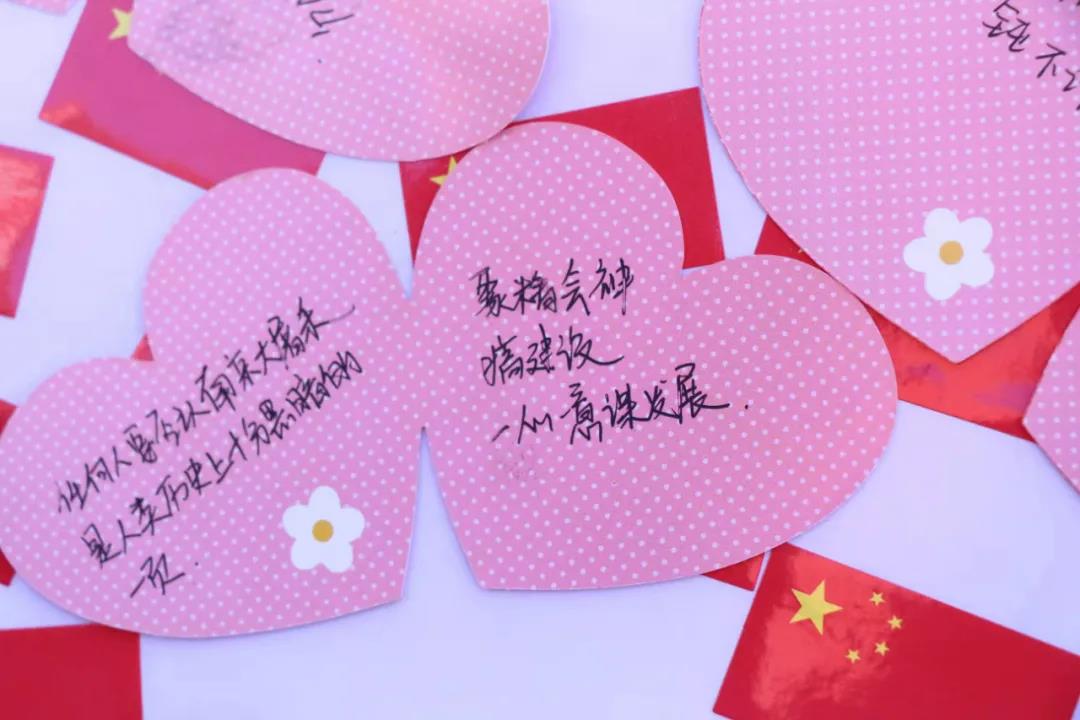 任何人要否认南京大屠杀
是人类历史上十分黑暗的
一页.
聚精会神
搞建设
一心一意谋发展.